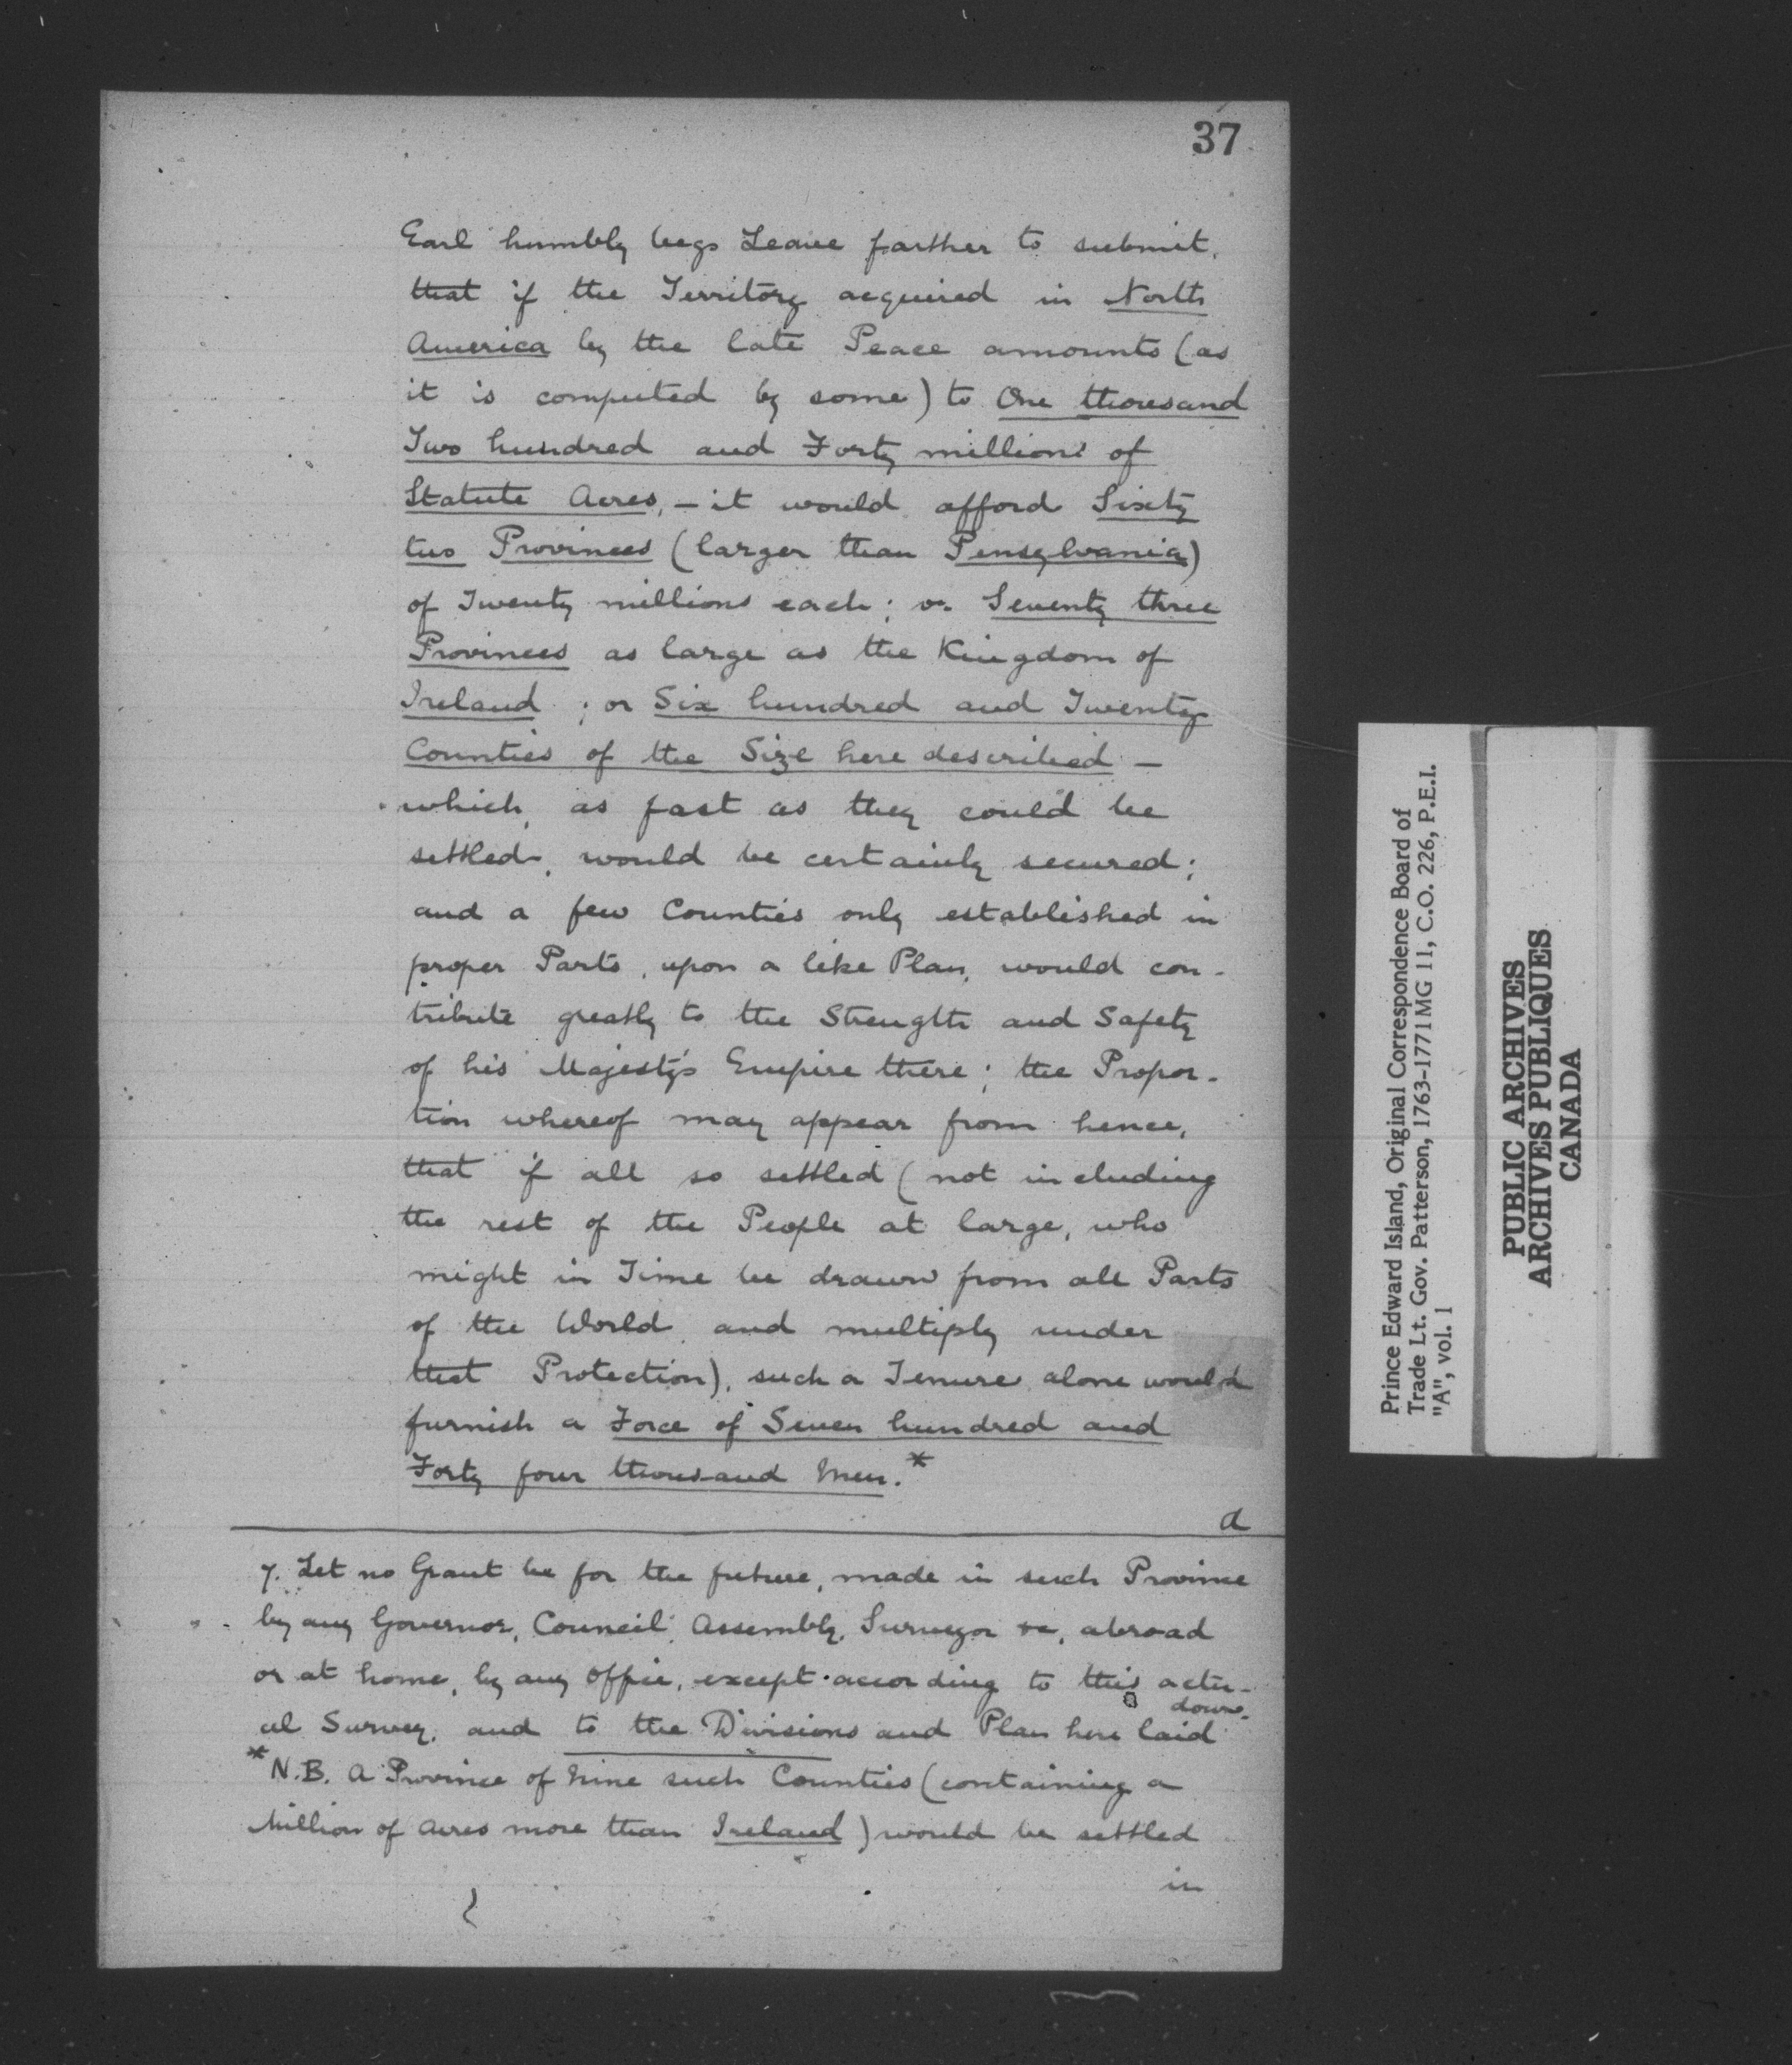 37
Earl humbly begs Leave farther to submit,
that if the Territory acquired in North
America by the late Peace amounts (as
it is computed by some) to One thousand
Two hundred and Forty millions of
Statute Acres, - it would afford Sixty
two Provinces (larger than Pensylvania)
of Twenty millions each; or Seventy three
Provinces as large as the Kingdom of
Ireland; or Six hundred and Twenty
Counties of the Size here described -
which, as fast as they could be
settled, would be certainly secured;
and a few Counties only established in
proper Parts, upon a like Plan, would con-
tribute greatly to the Strength and Safety
of his Majesty's Empire there; the Propor-
tion whereof may appear from hence,
that if all so settled (not including
the rest of the People at large, who
might in Time be drawn from all Parts
of the World and multiply under
that Protection), such a Tenure alone would
furnish a Force of Seven hundred and
Forty four thousand Men.*
a
7. Let no Grant be for the future, made in such Province
by any Governor, Council, Assembly, Surveyor &c, abroad
or at home, by any Office, except according to this actu-
al Survey, and to the Divisions and Plan here laid down.
*N.B. A Province of Nine such Counties (containing a
Million of Acres more than Ireland) would be settled
in
Prince Edward Island, Original Correspondence Board of
Trade Lt. Gov. Patterson, 1763-1771 MG 11, C.O. 226, P.E.I.
"A", vol. 1
PUBLIC ARCHIVES
ARCHIVES PUBLIQUES
CANADA